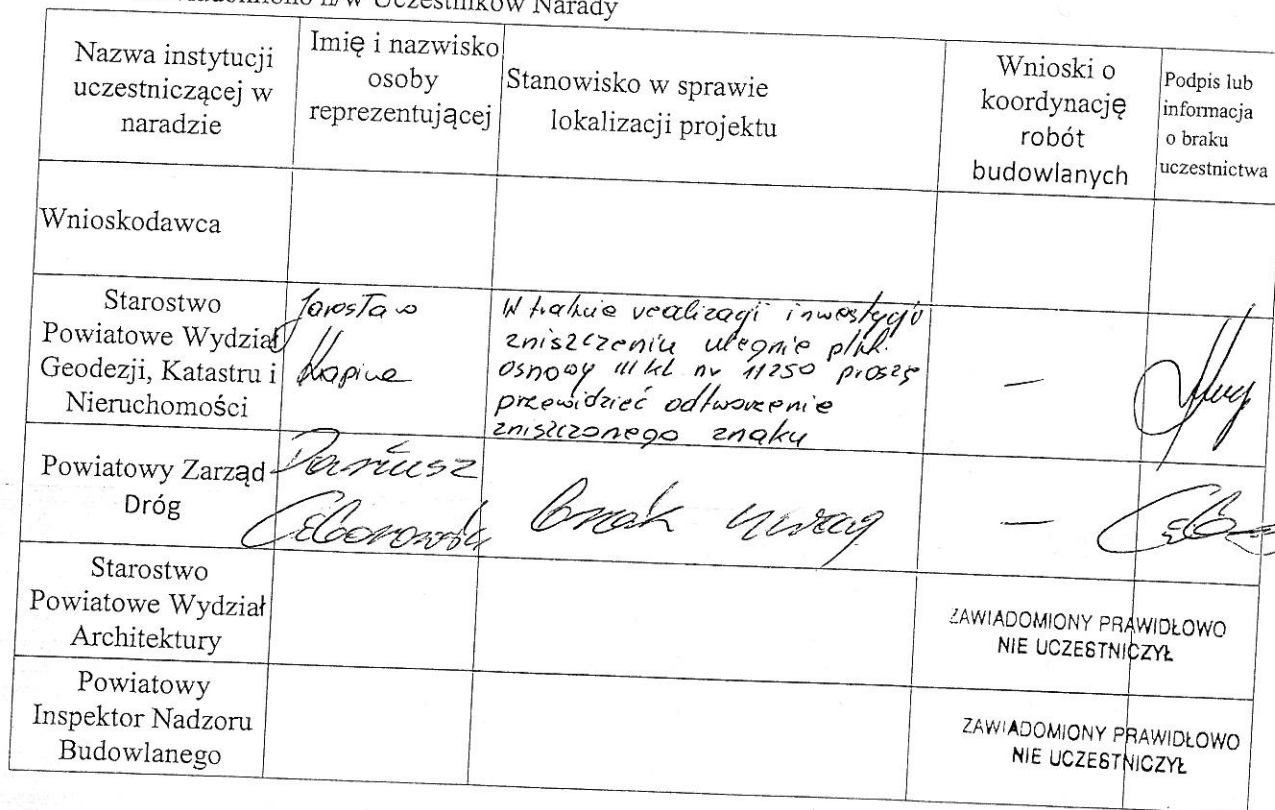 n/w Uczestników Narady
Nazwa instytucji
uczestniczącej w
naradzie
Imię i nazwisko
osoby
reprezentującej
Stanowisko w sprawie
lokalizacji projektu
Wnioski o
koordynację
robót
budowlanych
Podpis lub
informacja
o braku
uczestnictwa
Wnioskodawca
Starostwo
Powiatowe Wydział
Geodezji, Katastru i
Nieruchomości
Jarosław
W trakcie realizacji inwestycji
zniszczeniu ulegnie pkt.
osnowy III kl nr 11250 proszę
przewidzieć odtworzenie
zniszczonego znaku
—
Powiatowy Zarząd
Dróg
Dariusz
brak uwag
—
Starostwo
Powiatowe Wydział
Architektury
ZAWIADOMIONY PRAWIDŁOWO
NIE UCZESTNICZYŁ
Powiatowy
Inspektor Nadzoru
Budowlanego
ZAWIADOMIONY PRAWIDŁOWO
NIE UCZESTNICZYŁ